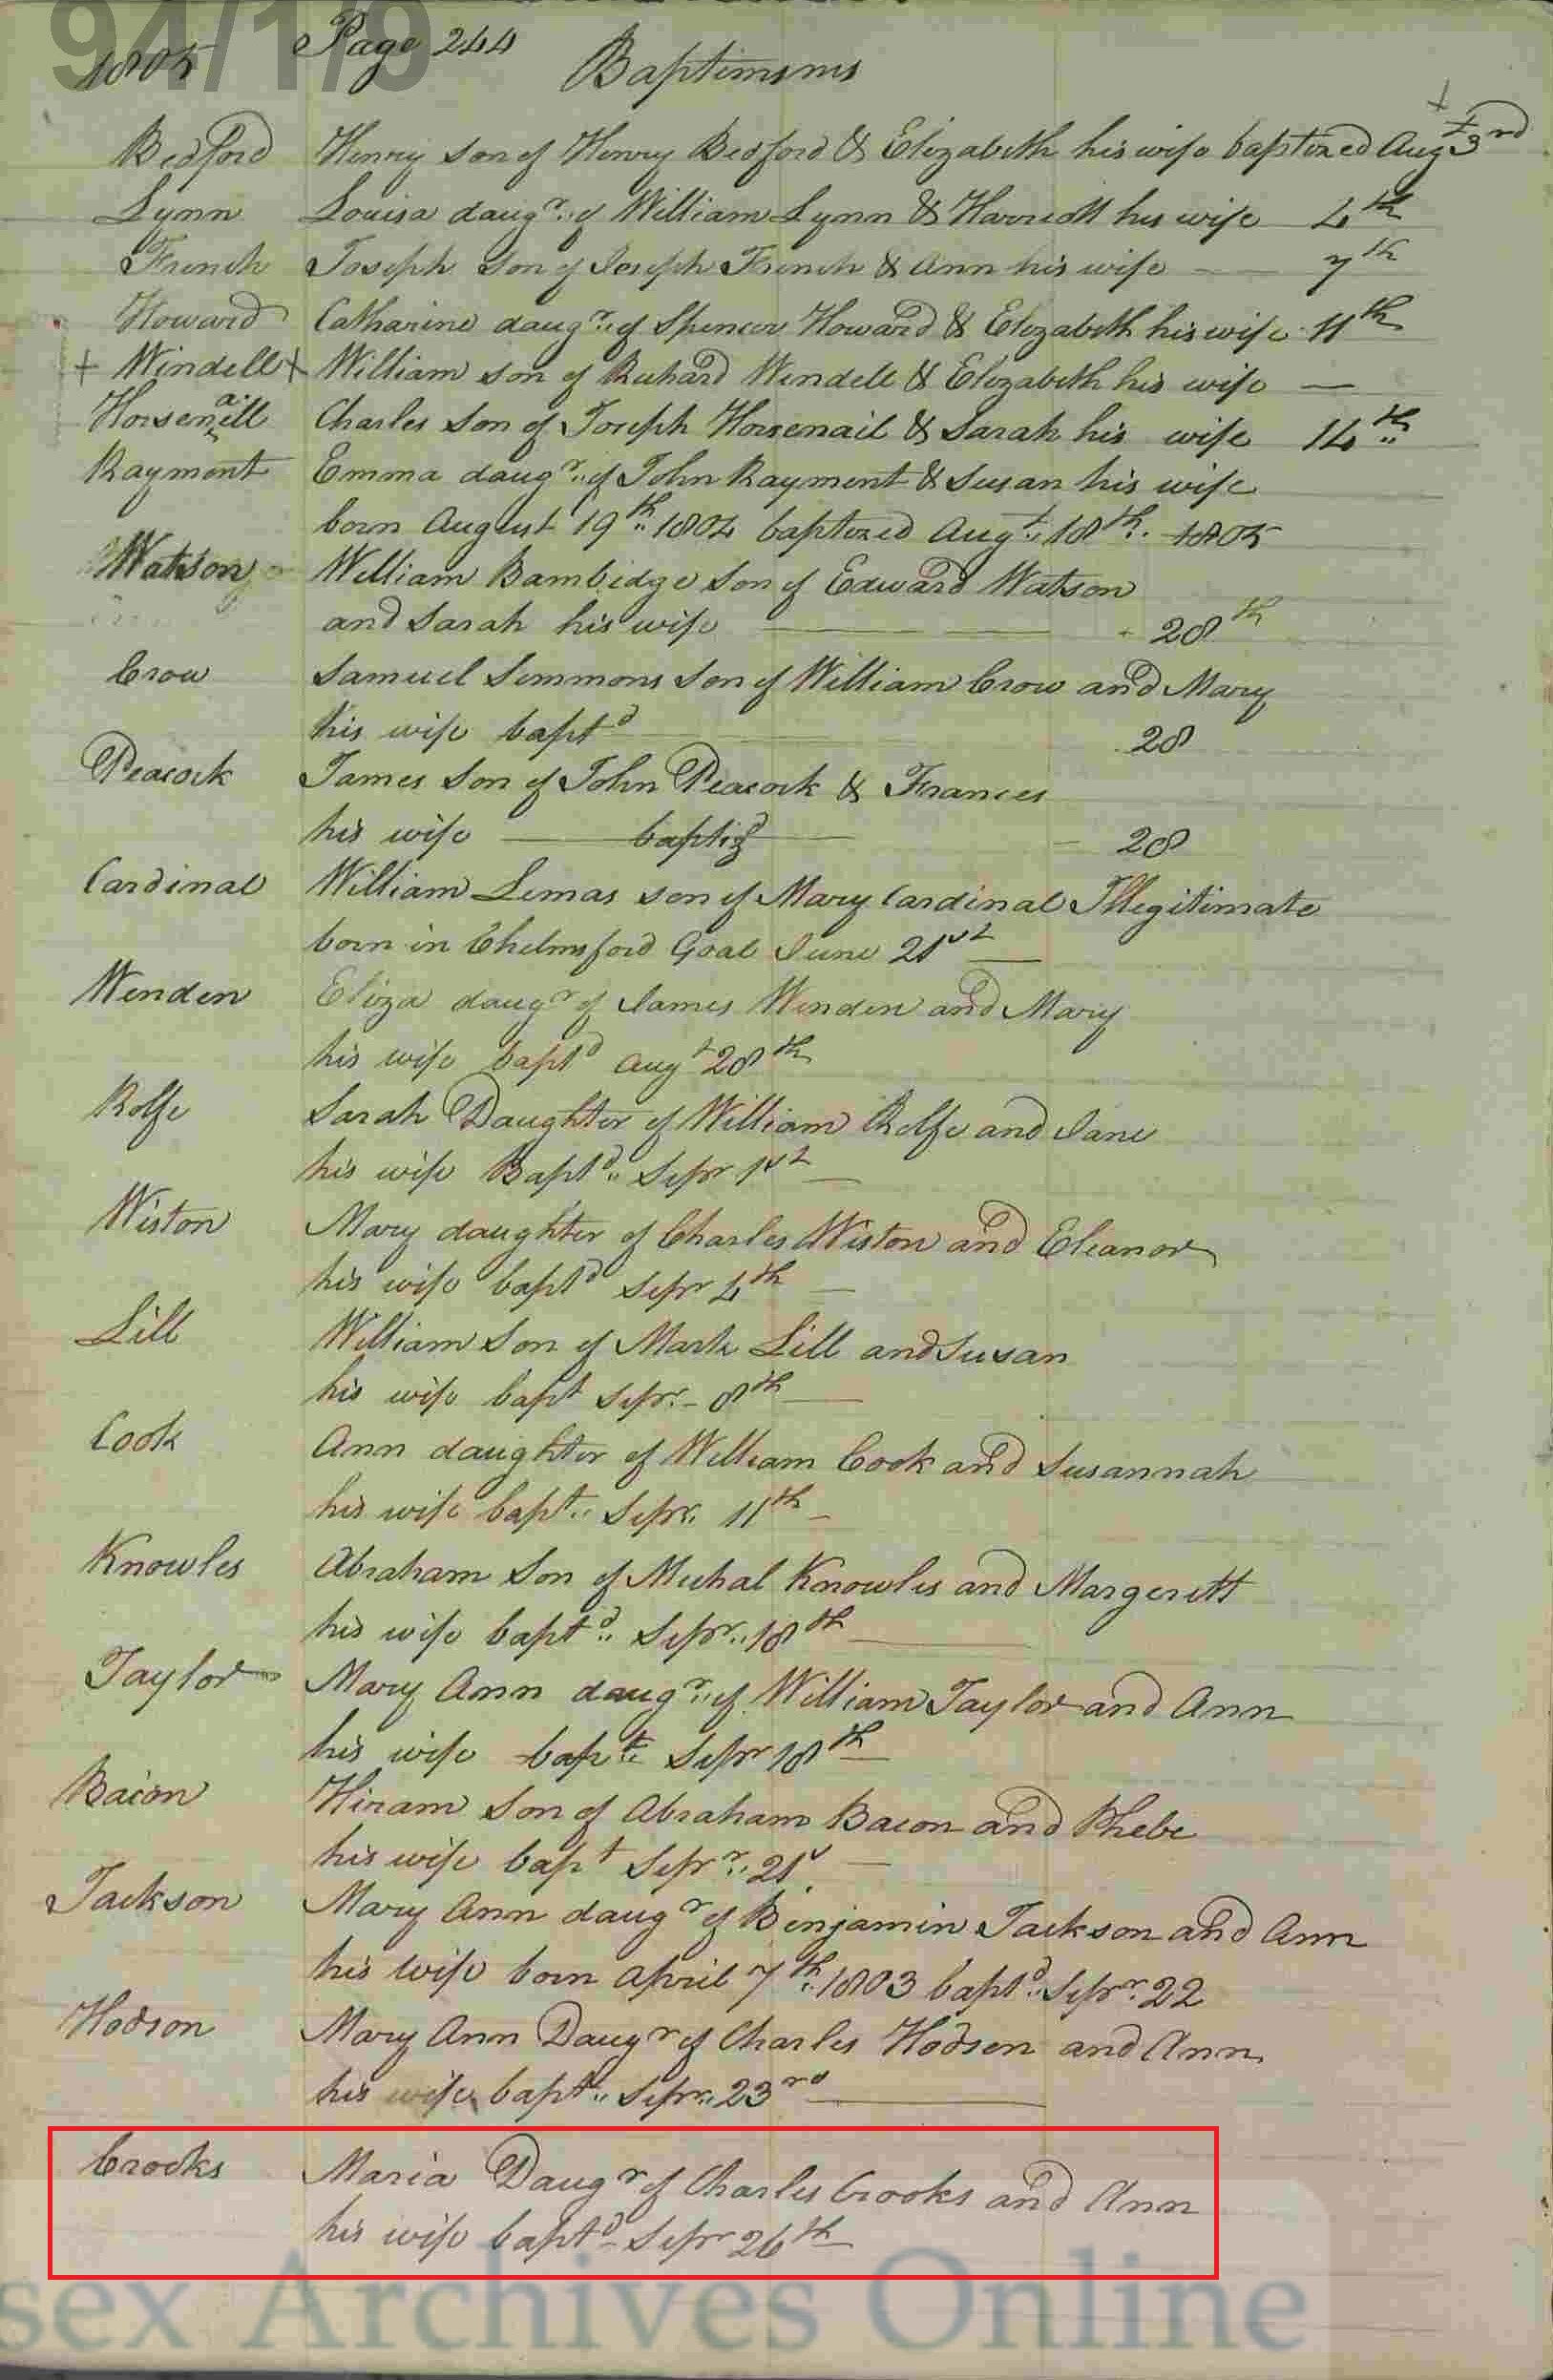 94/1/9
1805 Page 244 Baptimsms
Bedford Henry son of Henry Bedford & Elizabeth his wife baptized Augt 3rd
Lynn Louisa daugr. of William Lynn & Harriott his wife 4th
French Joseph son of Joseph French & Ann his wife 7th
Howard Catharine daugr. of Spencer Howard & Elizabeth his wife 11th
+ Windell + William son of Richard Windell & Elizabeth his wife —
Horsenaill Charles son of Joseph Horsenail & Sarah his wife 14th
Rayment Emma daugr. of John Rayment & Susan his wife
born August 19th 1804 baptized Augt. 18th. 1805
Watson William Bambidge son of Edward Watson
and Sarah his wife 28th
Crow Samuel Simmons son of William Crow and Mary
his wife baptd 28
Peacock James son of John Peacock & Frances
his wife baptizd 28
Cardinal William Lemas son of Mary Cardinal Illegitimate
born in Chelmsford Goal June 21st
Wenden Eliza daugr of James Wenden and Mary
his wife baptd Augt 28th
Rolfe Sarah Daughter of William Rolfe and Jane
his wife Baptd. Sepr 1st
Wiston Mary daughter of Charles Wiston and Eleanor
his wife baptd Sepr 4th
Lill William Son of Mark Lill and Susan
his wife bapt Sepr. 8th
Cook Ann daughter of William Cook and Susannah
his wife bapt. Sepr. 11th
Knowles Abraham Son of Michal Knowles and Margerett
his wife baptd. Sepr. 18th
Taylor Mary Ann daugr. of William Taylor and Ann
his wife bapt. Sepr 18th
Bacon Hiram Son of Abraham Bacon and Phebe
his wife bapt Sepr. 21s
Jackson Mary Ann daugr of Binjamin Jackson and Ann
his wife born April 7th. 1803 baptd. Sepr. 22
Hodson Mary Ann Daugr of Charles Hodson and Ann
his wife bapt. Sepr. 23rd
Crooks Maria Daugr of Charles Crooks and Ann
his wife baptd Sepr 26th
sex Archives Online